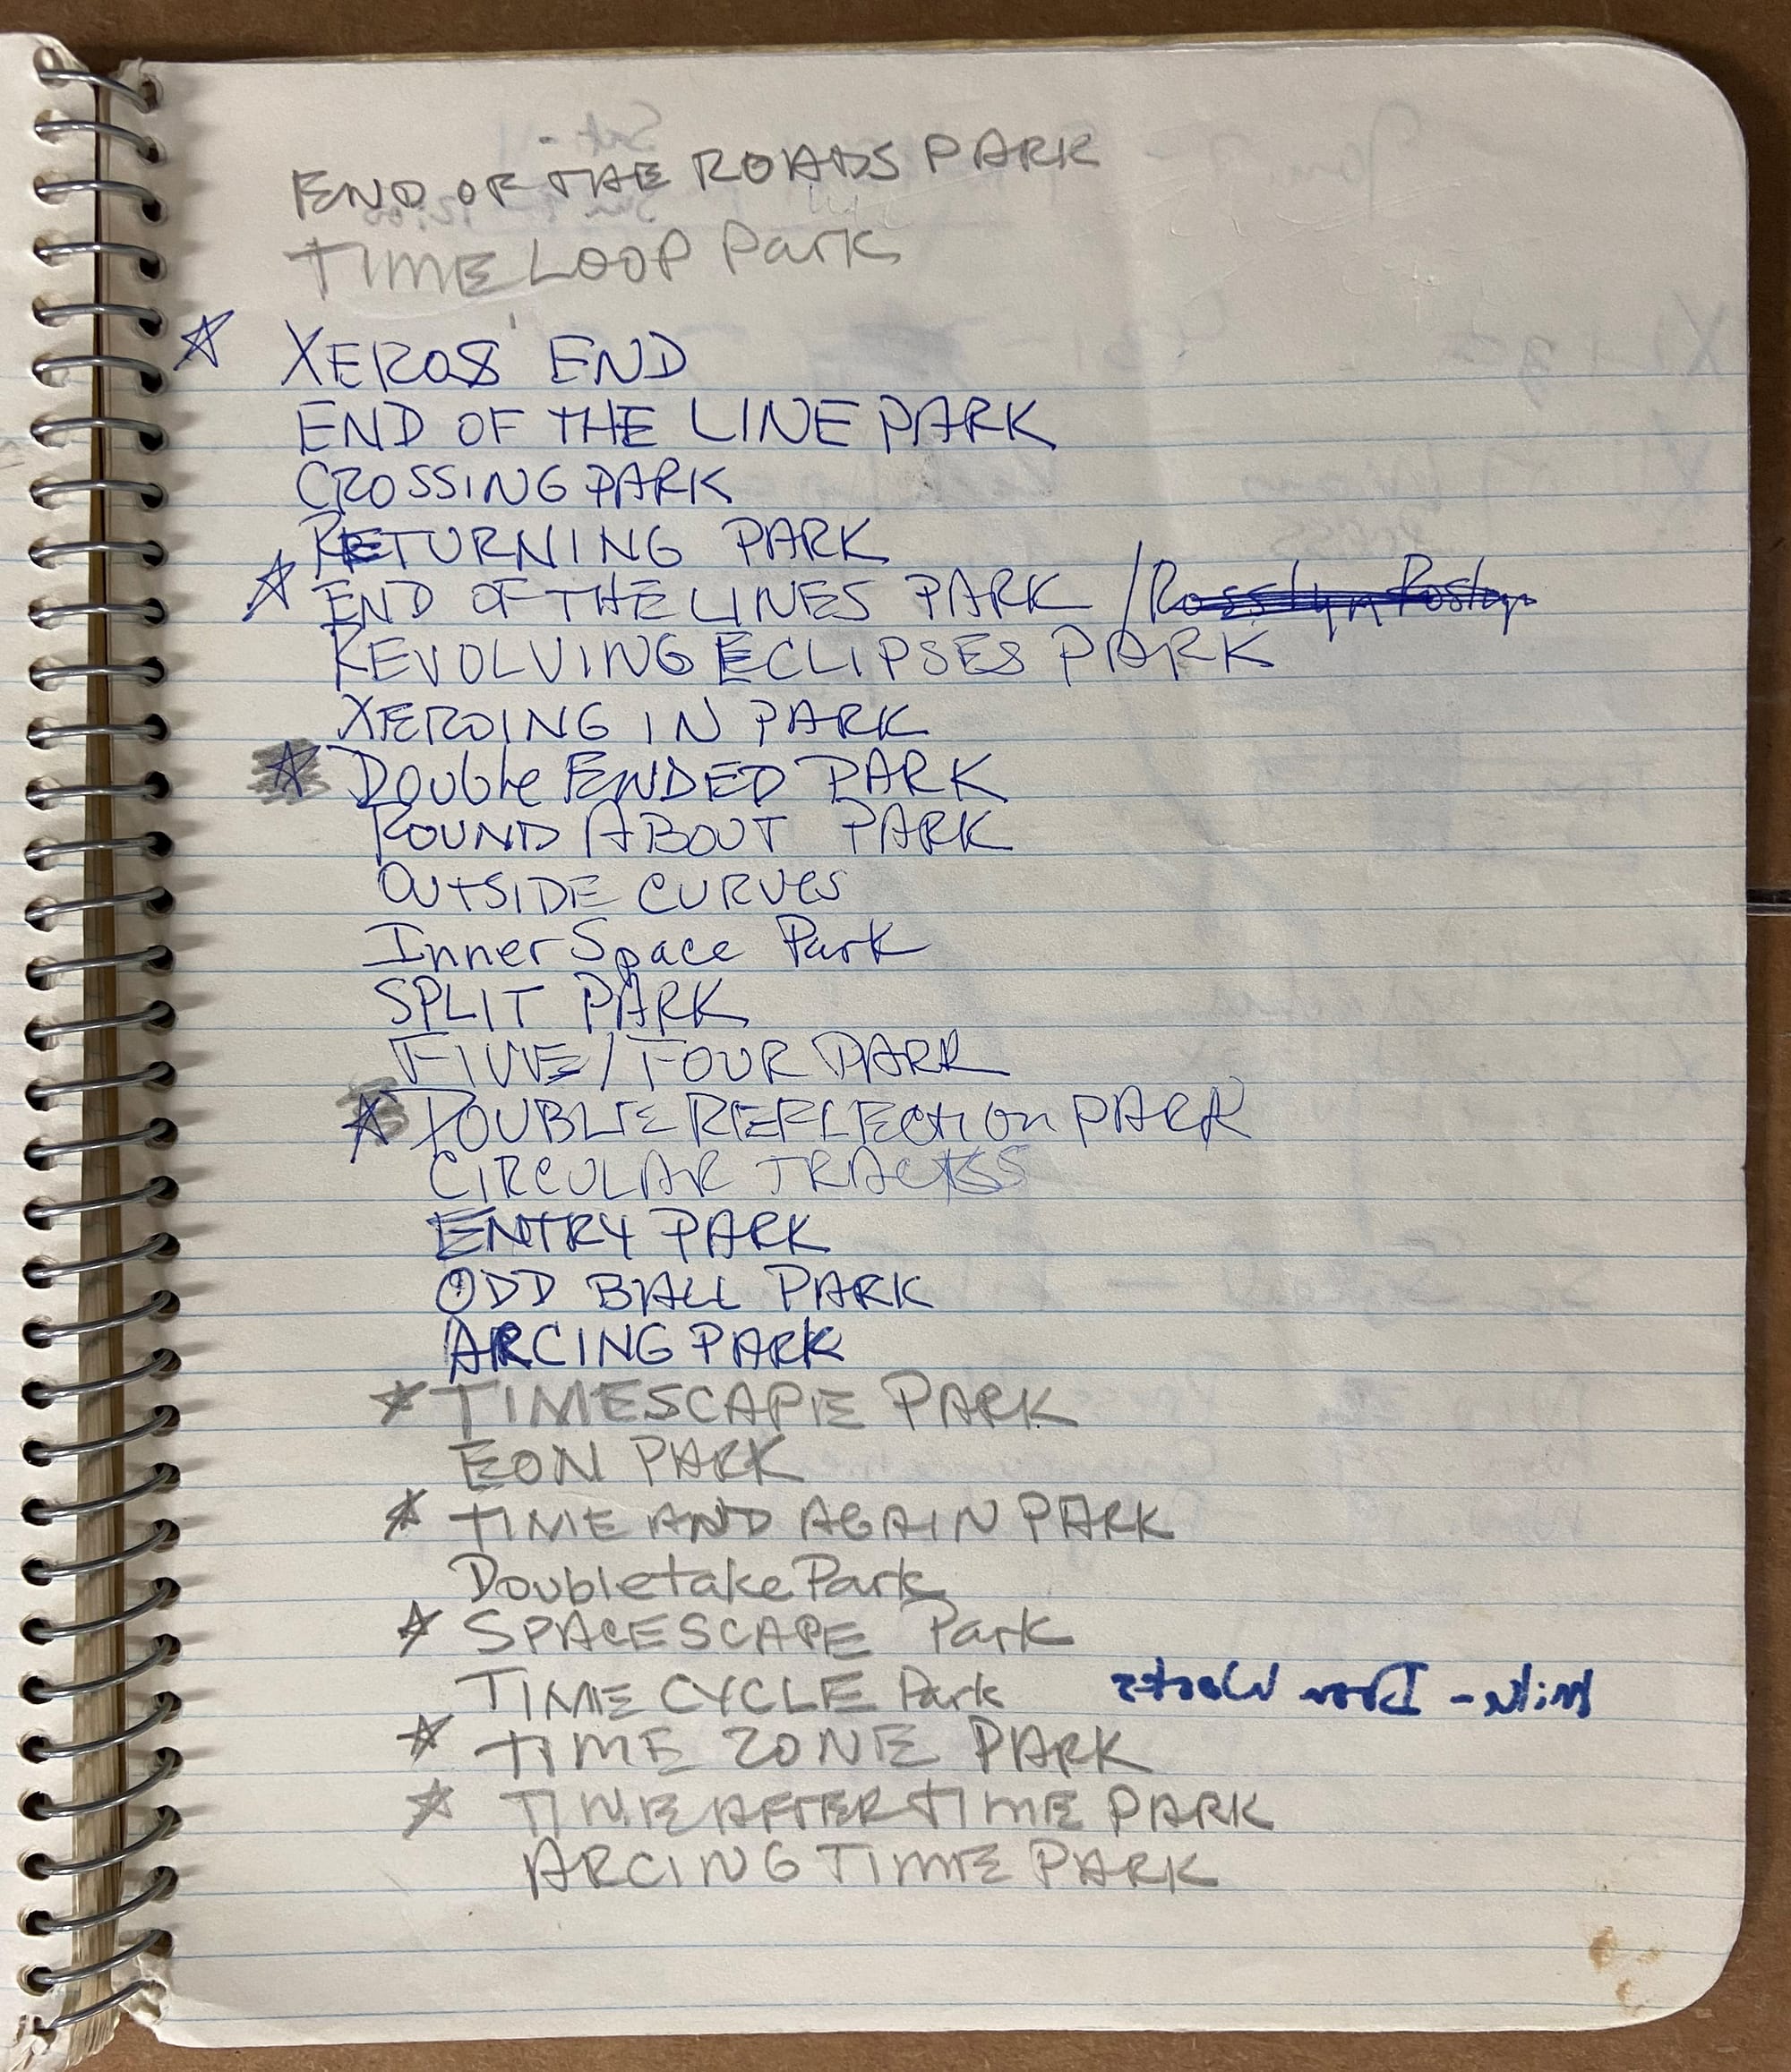 END OF THE ROADS PARK
TIME LOOP Park
☆ XEROS' END
END OF THE LINE PARK
CROSSING PARK
RETURNING PARK
☆ END OF THE LINES PARK / Rosslyn Roslyn
REVOLVING ECLIPSES PARK
XEROING IN PARK
☆ Double ENDED PARK
ROUND ABOUT PARK
OUTSIDE CURVES
Inner Space Park
SPLIT PARK
FIVE/FOUR PARK
☆ DOUBLE REFLECtion PARK
CIRCULAR TRACKS
ENTRY PARK
ODD BALL PARK
ARCING PARK
☆ TIMESCAPE PARK
EON PARK
☆ TIME AND AGAIN PARK
Doubletake Park
☆ SPACESCAPE Park
TIME CYCLE Park
☆ TIME ZONE PARK
☆ TIME AFTER TIME PARK
ARCING TIME PARK